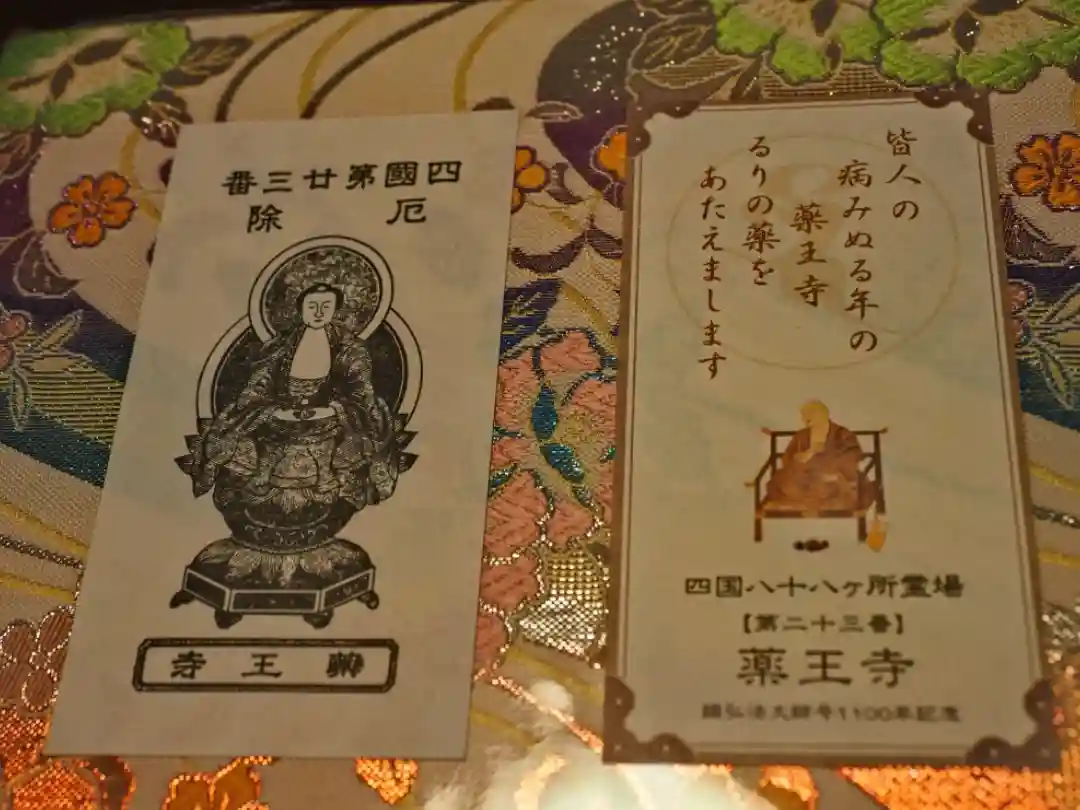 四國第廿三番
厄除
藥王寺
皆人の
病みぬる年の
薬王寺
るりの薬を
あたえまします
四国八十八ヶ所霊場
【第二十三番】
薬王寺
賜弘法大師号1100年記念